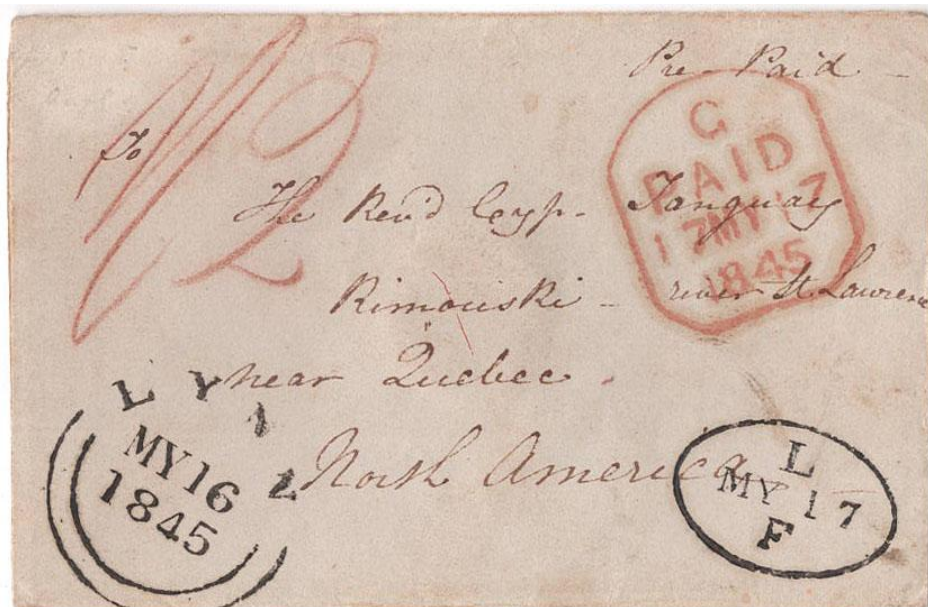 Pre-Paid -
1/2
To
The Rev'd Cyp. Tanguay
Rimouski - river St. Lawrence
near Quebec.
North America
G
PAID
17 MY 17
1845
LYNN
MY 16
1845
L
MY 17
F